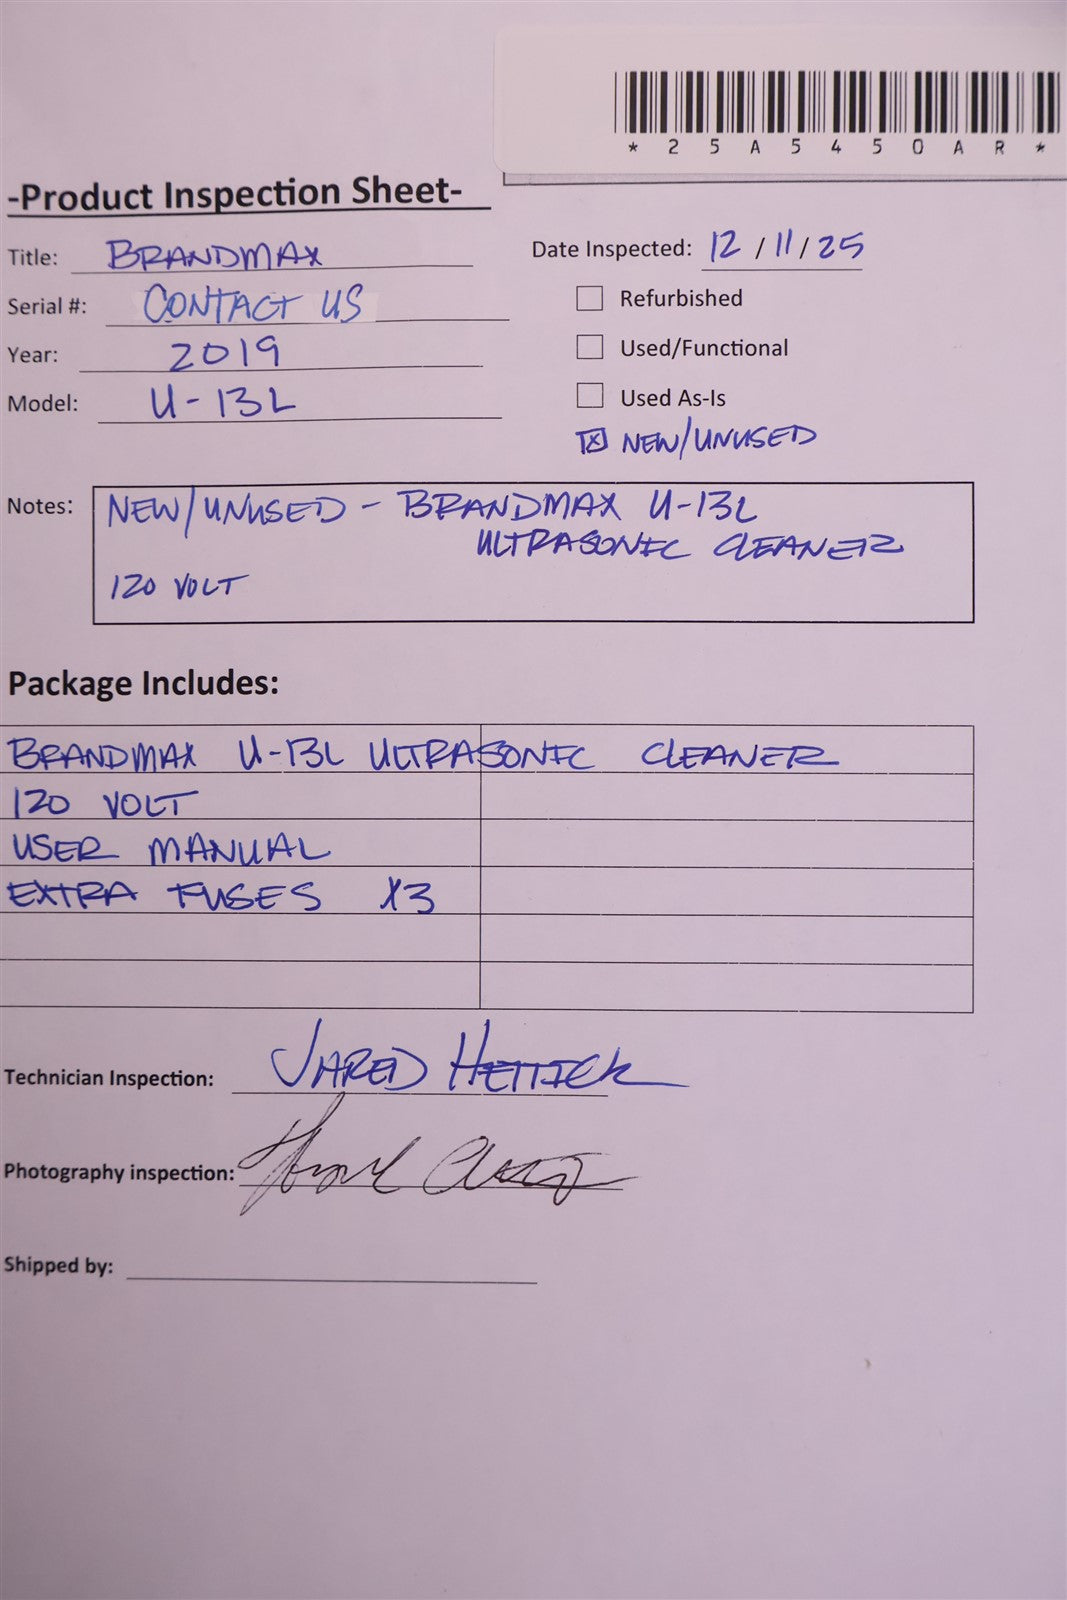 *25A5450AR*
-Product Inspection Sheet-
Title: BRANDMAX
Date Inspected: 12/11/25
Serial #: CONTACT US
Refurbished
Year: 2019
Used/Functional
Model: U-13L
Used As-Is
NEW/UNUSED
Notes: NEW/UNUSED - BRANDMAX U-13L
ULTRASONIC CLEANER
120 VOLT
Package Includes:
BRANDMAX U-13L ULTRASONIC CLEANER
120 VOLT
USER MANUAL
EXTRA FUSES X3
Technician Inspection: JARED HETTICK
Photography inspection:
Shipped by: